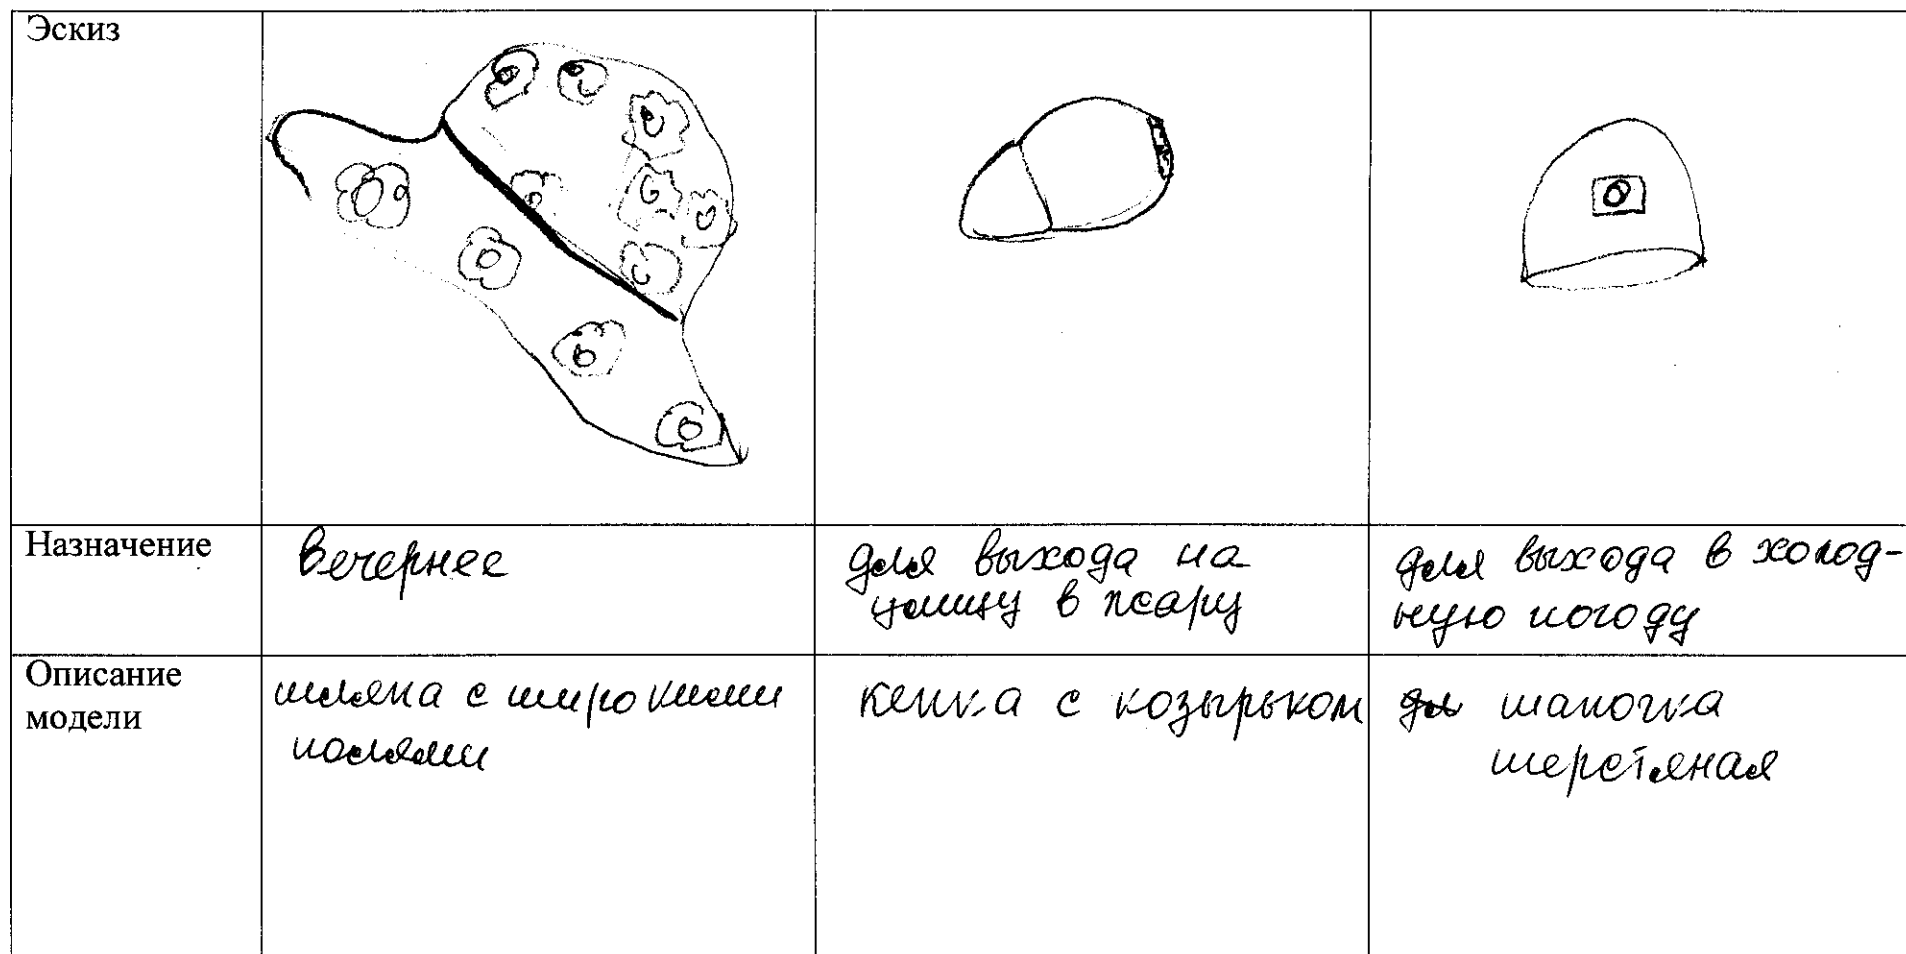 Эскиз
Назначение
вечернее
для выхода на
улицу в жару
для выхода в холод-
ную погоду
Описание
модели
шляпа с широкими
полями
кепка с козырьком
шапочка
шерстяная